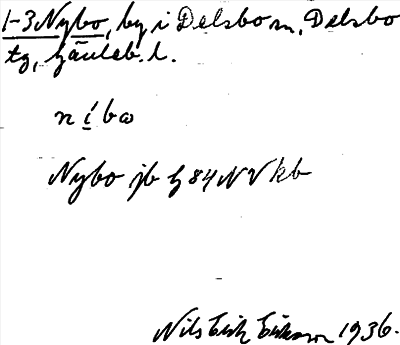 1-3 Nybo, by i Delsbo sn, Delsbo
tg, Gävleb. l.
níbω
Nybo jb h 84 NV kb
Nils Erik Eriksson 1936.